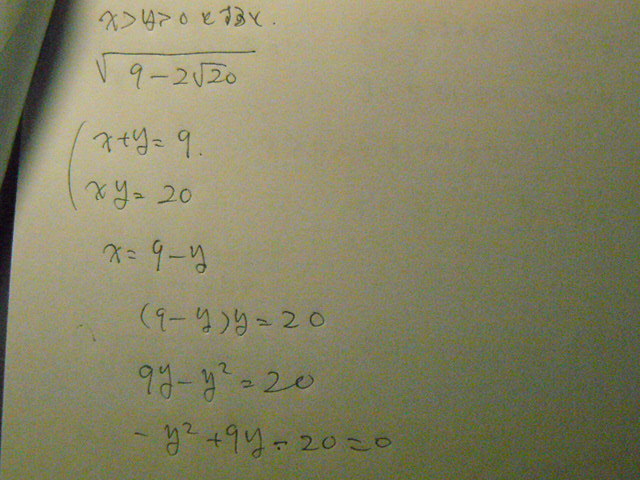 x>y>0とする.
√(9-2√20)
x+y=9.
xy=20
x=9-y
(9-y)y=20
9y-y²=20
-y²+9y-20=0